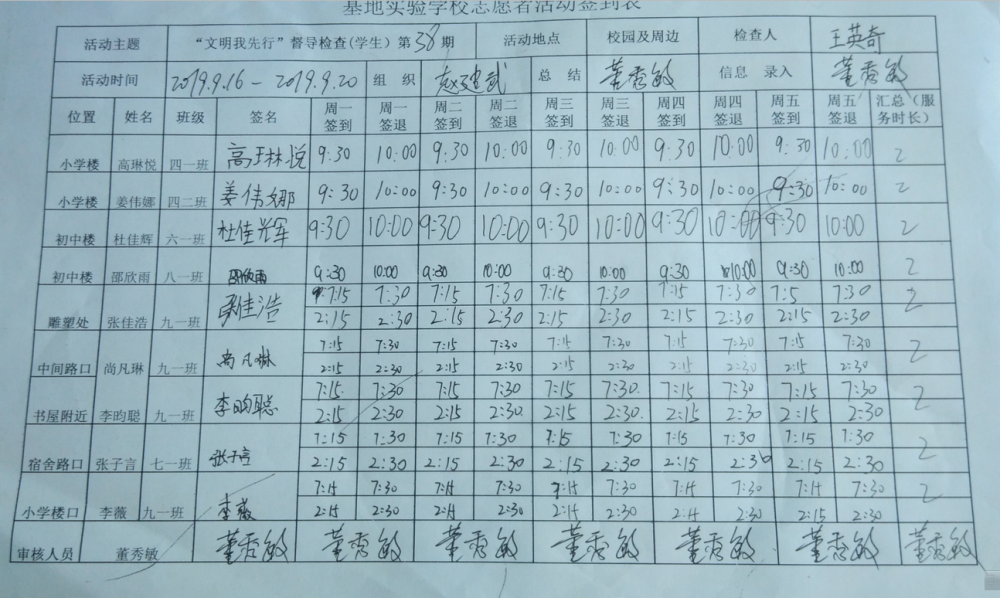 基地实验学校志愿者活动签到表
活动主题 “文明我先行”督导检查(学生)第38期 活动地点 校园及周边 检查人 王英奇
活动时间 2019.9.16-2019.9.20 组 织 赵建武 总 结 董秀敏 信息 录入 董秀敏
位置 姓名 班级 签名 周一签到 周一签退 周二签到 周二签退 周三签到 周三签退 周四签到 周四签退 周五签到 周五签退 汇总(服务时长)
小学楼 高琳悦 四一班 高琳悦 9:30 10:00 9:30 10:00 9:30 10:00 9:30 10:00 9:30 10:00 2
小学楼 姜伟娜 四二班 姜伟娜 9:30 10:00 9:30 10:00 9:30 10:00 9:30 10:00 9:30 10:00 2
初中楼 杜佳辉 六一班 杜佳辉 9:30 10:00 9:30 10:00 9:30 10:00 9:30 10:00 9:30 10:00 2
初中楼 邵欣雨 八一班 邵欣雨 9:30 10:00 9:30 10:00 9:30 10:00 9:30 10:00 9:30 10:00 2
雕塑处 张佳浩 九一班 张佳浩 7:15 7:30 7:15 7:30 7:15 7:30 7:15 7:30 7:5 7:30 2
2:15 2:30 2:15 2:30 2:15 2:30 2:15 2:30 2:15 2:30
中间路口 尚凡琳 九一班 尚凡琳 7:15 7:30 7:15 7:30 7:15 7:15 7:15 7:30 7:15 7:30 2
2:15 2:30 2:15 2:30 2:15 2:30 2:15 2:30 2:15 2:30
书屋附近 李昀聪 九一班 李昀聪 7:15 7:30 7:15 7:30 7:15 7:30 7:15 7:30 7:15 7:30 2
2:15 2:30 2:15 2:30 2:15 2:30 2:15 2:30 2:15 2:30
宿舍路口 张子言 七一班 张子言 7:15 7:30 7:15 7:30 7:15 7:30 7:15 7:30 7:15 7:30 2
2:15 2:30 2:15 2:30 2:15 2:30 2:15 2:30 2:15 2:30
小学楼口 李薇 九一班 李薇 7:14 7:30 7:14 7:30 7:14 7:30 7:14 7:30 7:14 7:30 2
2:14 2:30 2:14 2:30 2:14 2:30 2:14 2:30 2:15 2:30
审核人员 董秀敏 董秀敏 董秀敏 董秀敏 董秀敏 董秀敏 董秀敏 董秀敏